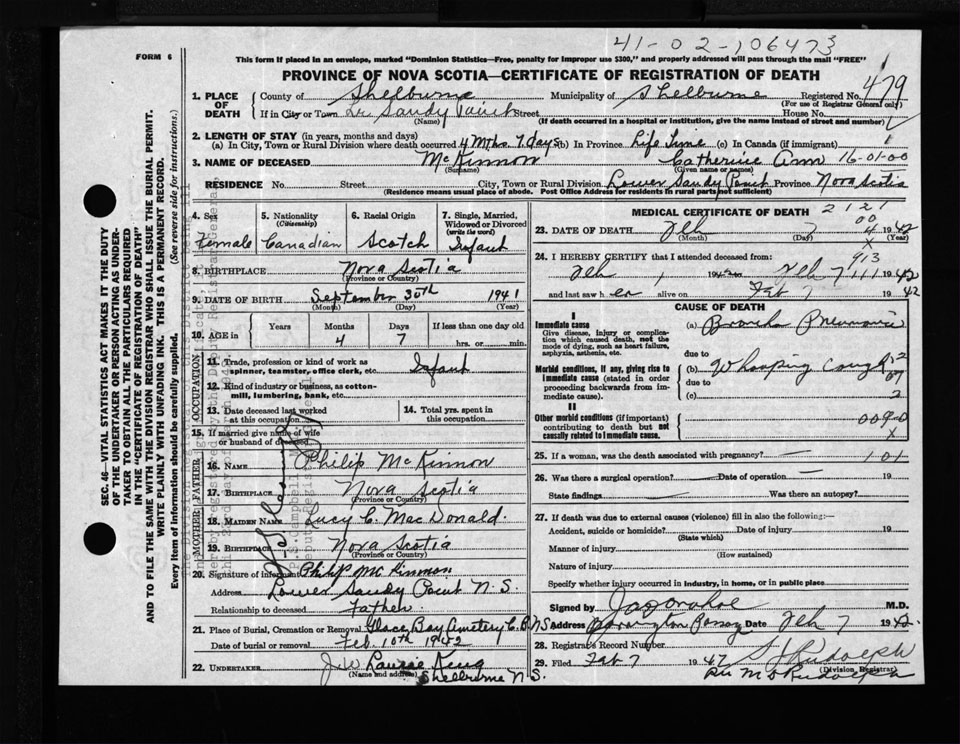 41-02-106473
FORM 6
This form if placed in an envelope, marked "Dominion Statistics—Free, penalty for improper use $300," and properly addressed will pass through the mail "FREE"
PROVINCE OF NOVA SCOTIA—CERTIFICATE OF REGISTRATION OF DEATH
479
1. PLACE OF DEATH County of Shelburne Municipality of Shelburne Registered No.
(For use of Registrar General only)
If in City or Town Lr. Sandy Point Street House No.
(Name) (If death occurred in a hospital or institution, give the name instead of street and number)
2. LENGTH OF STAY (in years, months and days)
(a) In City, Town or Rural Division where death occurred 4 Mths. 7 days (b) In Province Life Time (c) In Canada (if immigrant)
3. NAME OF DECEASED McKinnon Catherine Ann 16-01-00
(Surname) (Given name or names)
RESIDENCE No. Street City, Town or Rural Division Lower Sandy Point Province Nova Scotia
(Residence means usual place of abode. Post Office Address for residents in rural parts not sufficient)
4. Sex 5. Nationality (Citizenship) 6. Racial Origin 7. Single, Married, Widowed or Divorced (write the word)
Female Canadian Scotch Infant
8. BIRTHPLACE Nova Scotia
(Province or Country)
9. DATE OF BIRTH September 30th 1941
(Month) (Day) (Year)
10. AGE in Years Months Days If less than one day
4 7 hrs. or min.
OCCUPATION
11. Trade, profession or kind of work as spinner, teamster, office clerk, etc. Infant
12. Kind of industry or business, as cotton-mill, lumbering, bank, etc.
13. Date deceased last worked at this occupation 14. Total yrs. spent in this occupation
15. If married give name of wife or husband of deceased
FATHER
16. NAME Philip McKinnon
17. BIRTHPLACE Nova Scotia
(Province or Country)
MOTHER
18. MAIDEN NAME Lucy C. MacDonald.
19. BIRTHPLACE Nova Scotia
(Province or Country)
20. Signature of informant Philip McKinnon
Address Lower Sandy Point N.S.
Relationship to deceased Father.
21. Place of Burial, Cremation or Removal Glace Bay Cemetery C.B. N.S.
Date of burial or removal Feb. 10th 1942
22. UNDERTAKER
(Name and address) Shelburne N.S.
MEDICAL CERTIFICATE OF DEATH
2121
00
23. DATE OF DEATH Feb 7 4 1942
(Month) (Day) (Year)
X
24. I HEREBY CERTIFY that I attended deceased from:
913
Feb 1 19 Feb 7 111 1942
and last saw her alive on Feb 7 1942
CAUSE OF DEATH
I
Immediate cause
Give disease, injury or complication which caused death, not the mode of dying, such as heart failure, asphyxia, asthenia, etc.
(a) Broncho Pneumonia
due to
Morbid conditions, if any, giving rise to immediate cause (stated in order proceeding backwards from immediate cause).
(b) Whooping Cough
due to
(c) 2
II
Other morbid conditions (if important) contributing to death but not causally related to immediate cause.
X
25. If a woman, was the death associated with pregnancy? 101
26. Was there a surgical operation? Date of operation 19
State findings Was there an autopsy?
27. If death was due to external causes (violence) fill in also the following:—
Accident, suicide or homicide? Date of injury 19
(State which)
Manner of injury
(How sustained)
Nature of injury
Specify whether injury occurred in industry, in home, or in public place
Signed by M.D.
Address Barrington Passage Date Feb 7 1942
28. Registrar's Record Number
29. Filed Feb 7 1942 Rudolph
(Division Registrar)
SEC. 46—VITAL STATISTICS ACT MAKES IT THE DUTY
OF THE UNDERTAKER OR PERSON ACTING AS UNDER-
TAKER TO OBTAIN ALL THE PARTICULARS REQUIRED
IN THE "CERTIFICATE OF REGISTRATION OF DEATH"
AND TO FILE THE SAME WITH THE DIVISION REGISTRAR WHO SHALL ISSUE THE BURIAL PERMIT.
WRITE PLAINLY WITH UNFADING INK. THIS IS A PERMANENT RECORD.
Every item of information should be carefully supplied. (See reverse side for instructions.)